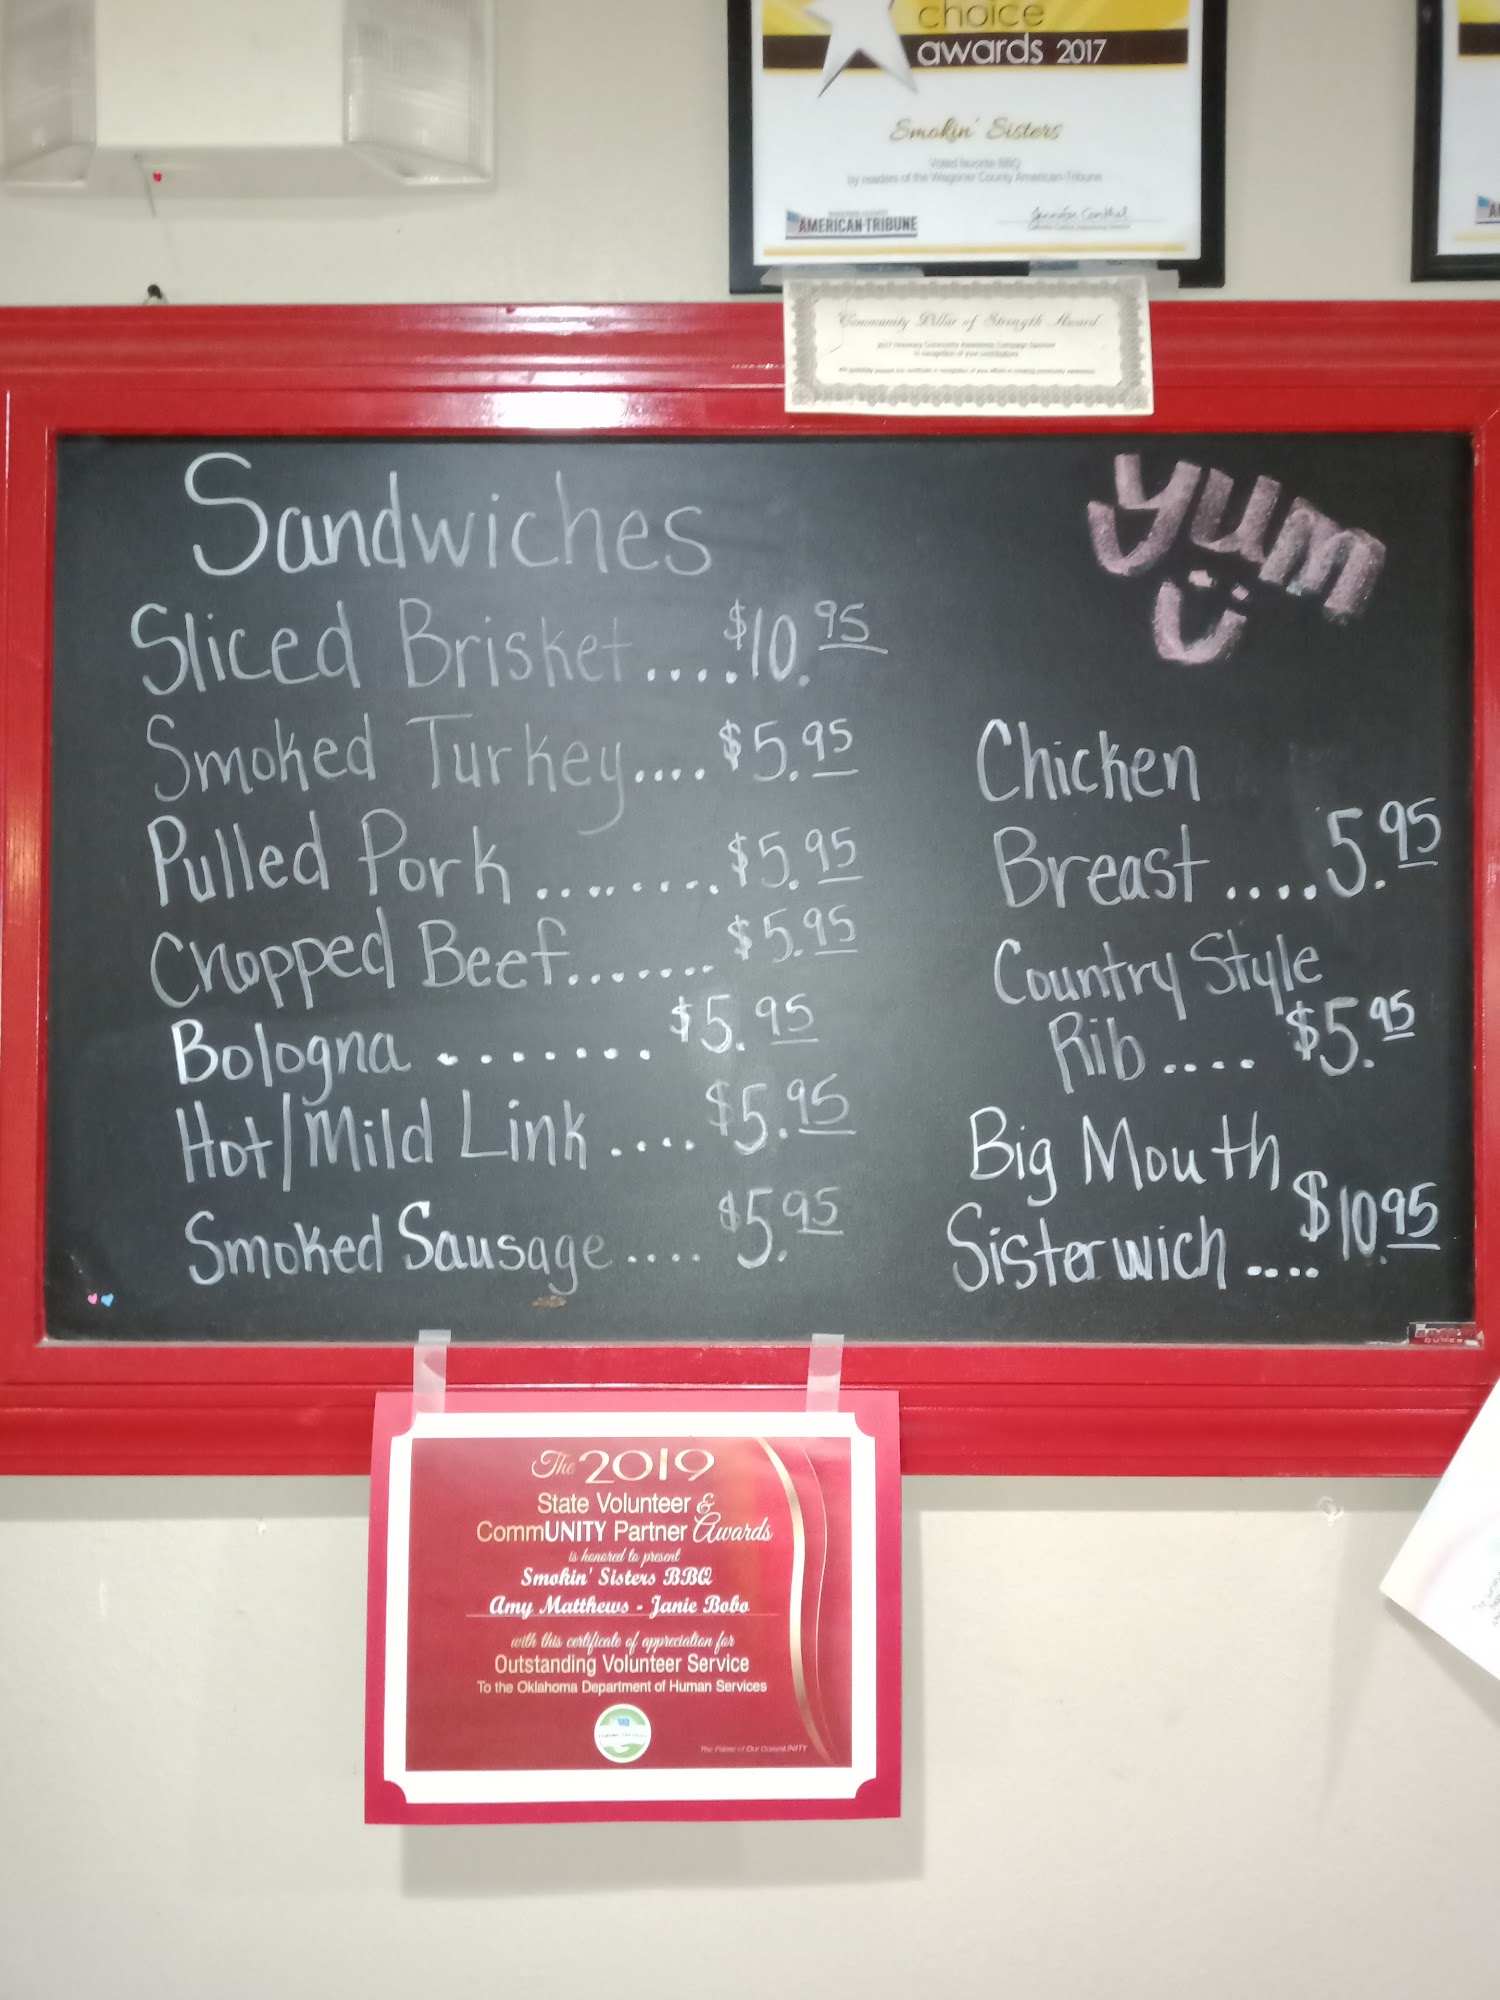 choice
awards 2017
Smokin' Sisters
Voted favorite BBQ
by readers of the Wagoner County American-Tribune
AMERICAN-TRIBUNE
Community Pillar of Strength Award
in recognition of your contributions
Sandwiches
yum
Sliced Brisket....$10.95
Smoked Turkey....$5.95
Pulled Pork.........$5.95
Chopped Beef.......$5.95
Bologna........$5.95
Hot/Mild Link....$5.95
Smoked Sausage....$5.95
Chicken
Breast....5.95
Country Style
Rib....$5.95
Big Mouth
Sisterwich....$10.95
The 2019
State Volunteer &
CommUNITY Partner Awards
is honored to present
Smokin' Sisters BBQ
Amy Matthews - Janie Bobo
with this certificate of appreciation for
Outstanding Volunteer Service
To the Oklahoma Department of Human Services